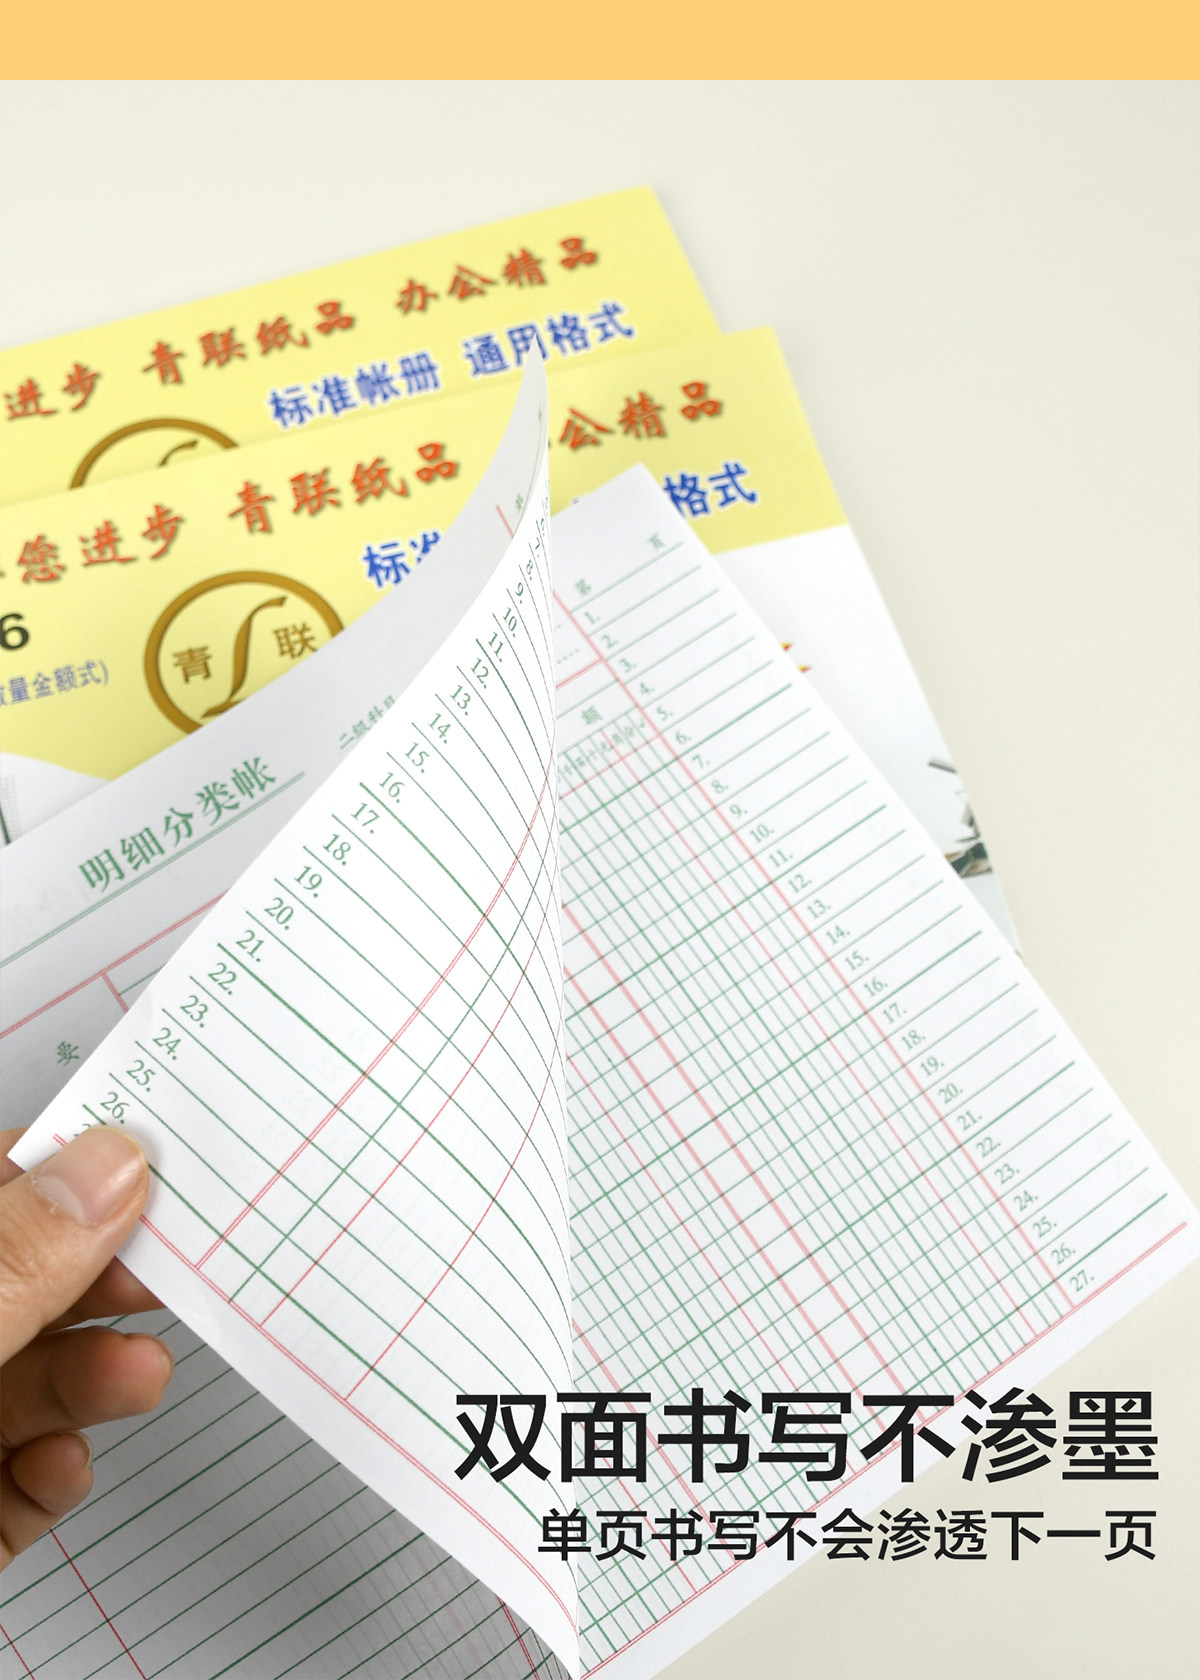 进步 青联纸品 办公精品
标准帐册 通用格式
您进步 青联纸品 公精品
标准 格式
6
量金额式)
青 联
明细分类帐
二级科目
要
页
第
额
1.
2.
3.
4.
5.
6.
7.
8.
9.
10.
11.
12.
13.
14.
15.
16.
17.
18.
19.
20.
21.
22.
23.
24.
25.
26.
27.
7.
8.
9.
10.
11.
12.
13.
14.
15.
16.
17.
18.
19.
20.
21.
22.
23.
24.
25.
26.
双面书写不渗墨
单页书写不会渗透下一页